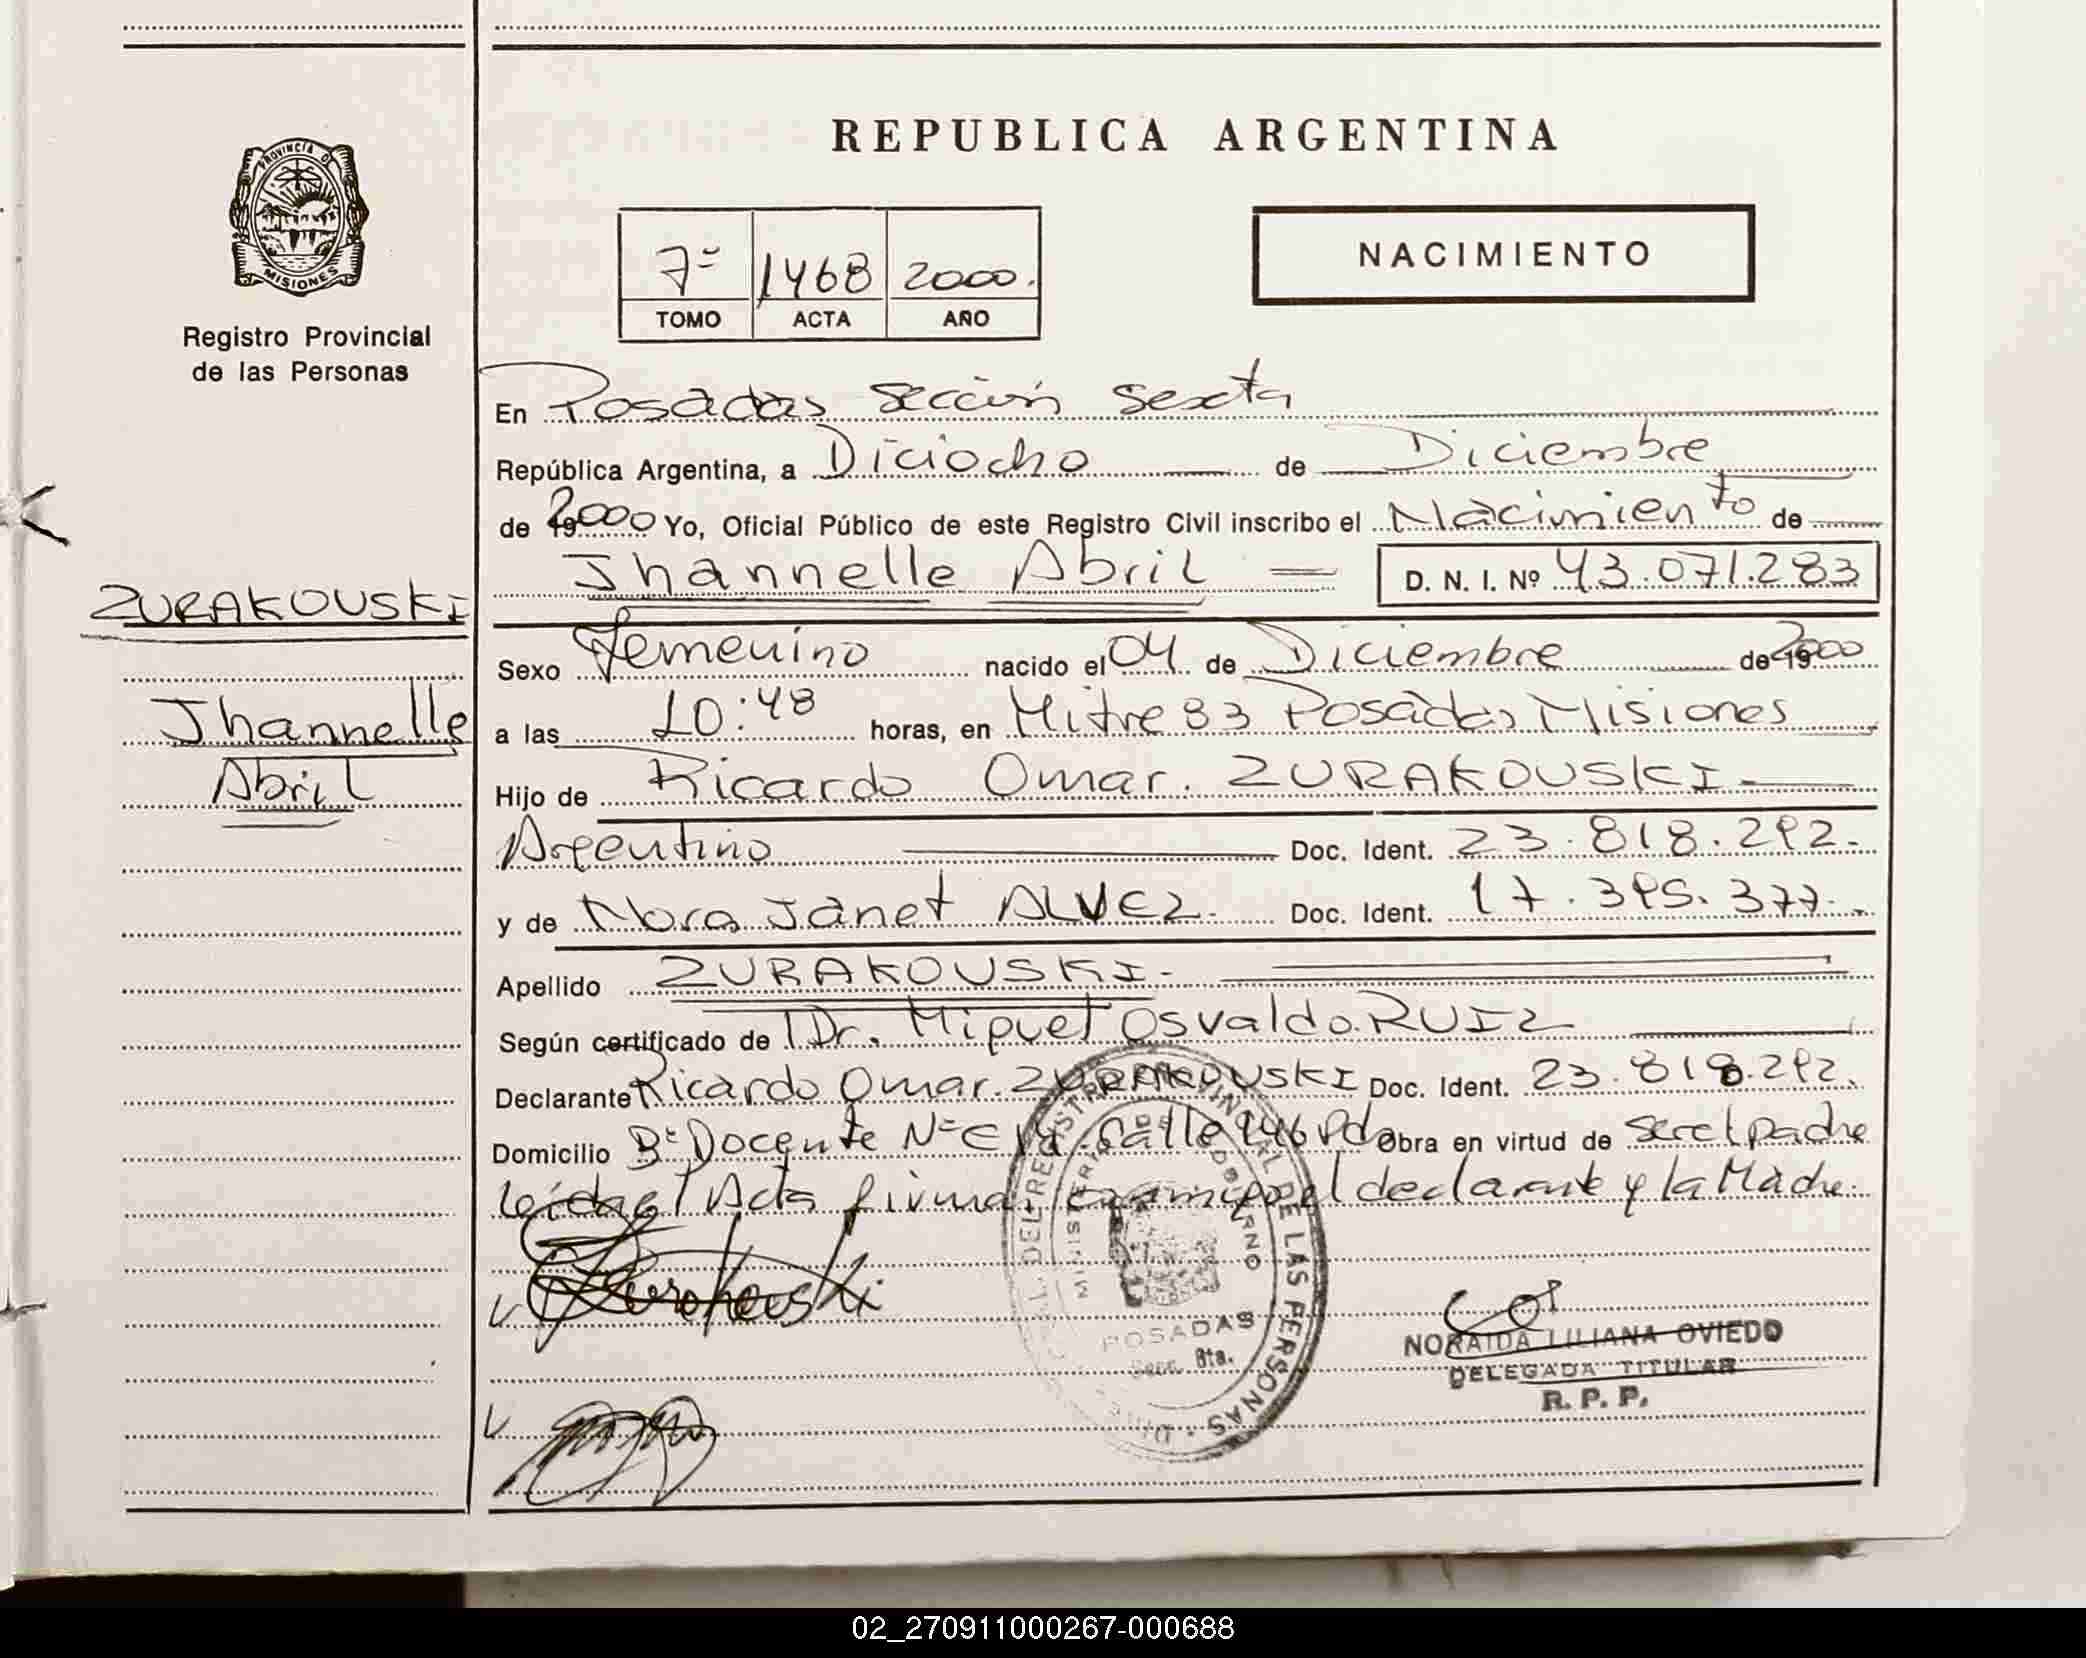 REPUBLICA ARGENTINA
PROVINCIA DE MISIONES
Registro Provincial
de las Personas
NACIMIENTO
7º 1468 2000.
TOMO ACTA AÑO
En Posadas sección sexta
República Argentina, a Diciocho de Diciembre
de 2000 Yo, Oficial Público de este Registro Civil inscribo el Nacimiento de
Jhannelle Abril D. N. I. Nº 43.071.283
ZURAKOUSKI
Jhannelle
Abril
Sexo Femenino nacido el 04 de Diciembre de 2000
a las 10:48 horas, en Mitre 83 Posadas Misiones
Hijo de Ricardo Omar. ZURAKOUSKI-
Argentino Doc. Ident. 23.818.292.
y de Nora Janet ALVEZ. Doc. Ident. 17.395.377.
Apellido ZURAKOUSKI.
Según certificado de Dr. Miguel Osvaldo RUIZ
Declarante Ricardo Omar. ZURAKOUSKI Doc. Ident. 23.818.292.
Domicilio Bº Docente Nº Calle 146 Pdas Obra en virtud de ser el padre
leída el Acta firman conmigo el declarante y la Madre.
Zurakouski
DEL REGISTRO PROVINCIAL DE LAS PERSONAS
MINISTERIO DE GOBIERNO
POSADAS
Secc. 6ta.
NORAIDA LILIANA OVIEDO
DELEGADA TITULAR
R. P. P.
02_270911000267-000688